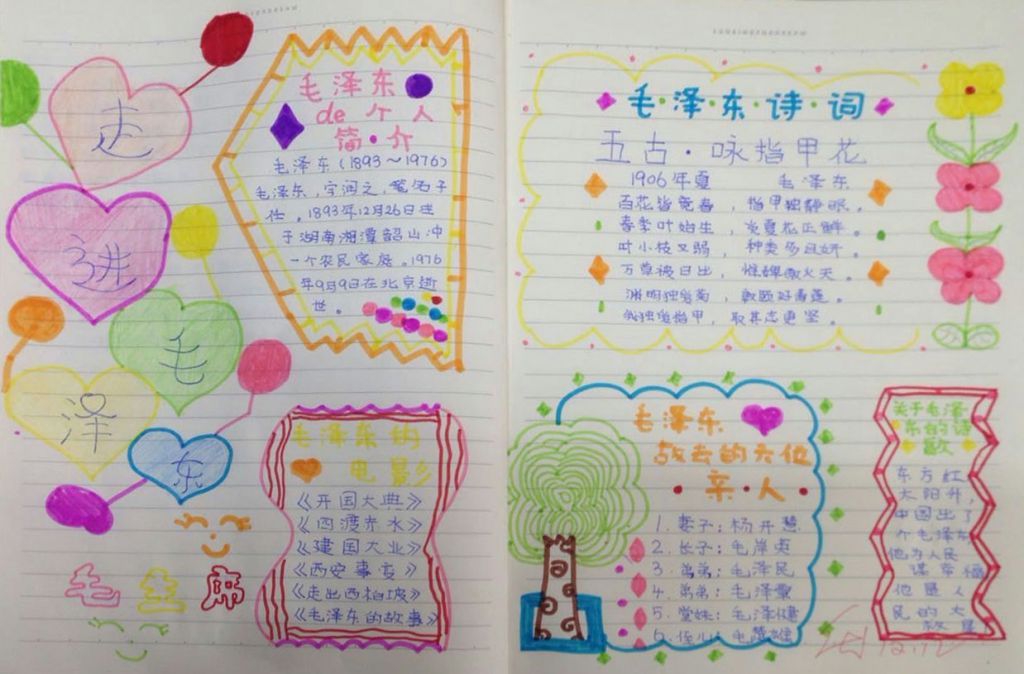 走
进
毛
泽
东
毛泽东
de个人
简·介
毛泽东(1893～1976)
毛泽东,字润之,笔名子
任。1893年12月26日生
于湖南湘潭韶山冲
一个农民家庭。1976
年9月9日在北京逝
世。
毛泽东的
电影
《开国大典》
《四渡赤水》
《建国大业》
《西安事变》
《走出西柏坡》
《毛泽东的故事》
毛·泽·东·诗·词
五古·咏指甲花
1906年夏 毛泽东
百花皆竞春，指甲独静眠。
春季叶始生，炎夏花正鲜。
叶小枝又弱，种类多且妍。
万草被日出，惟婢傲火天。
渊明独爱菊，敦颐好青莲。
我独爱指甲，取其志更坚。
毛泽东
故去的六位
·亲·人·
1.妻子：杨开慧
2.长子：毛岸英
3.弟弟：毛泽民
4.弟弟：毛泽覃
5.堂妹：毛泽健
6.侄儿：毛楚雄
关于毛泽
东的诗
歌
东方红
太阳升，
中国出了
个毛泽东
他为人民
谋幸福
他是人
民的大
救星